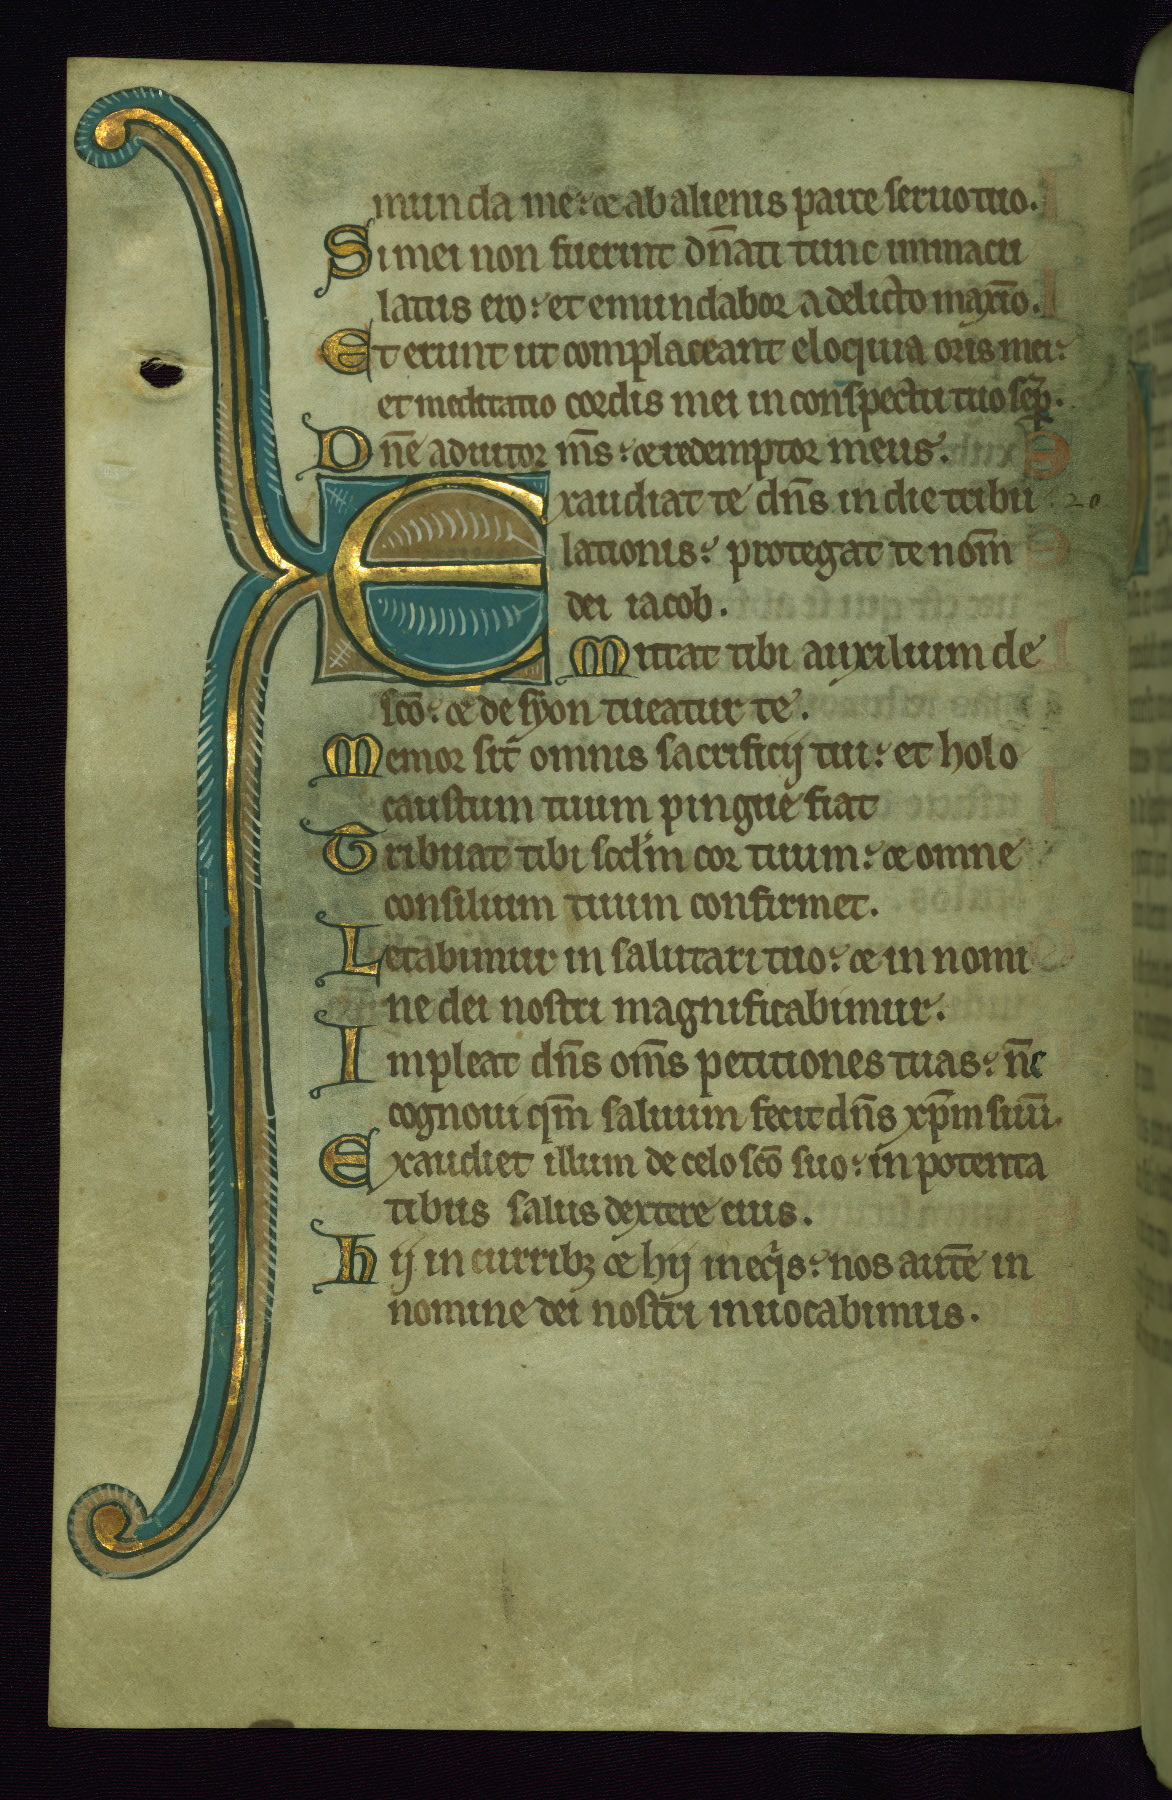 munda me: ⁊ ab alienis parce seruo tuo.
Si mei non fuerint dn̄ati tunc inmacu
latus ero: et emundabor a delicto maxīo.
Et erunt ut complaceant eloquia oris mei:
et meditatio cordis mei in conspectu tuo semp̄.
Dn̄e adiutor m̄s: ⁊ redemptor meus.
Exaudiat te dn̄s in die tribu
20
lationis: protegat te nom̄
dei iacob.
Mittat tibi auxilium de
sc̄o: ⁊ de syon tueatur te.
Memor sit omnis sacrificij tui: et holo
caustum tuum pingue fiat
Tribuat tibi scd̄m cor tuum: ⁊ omne
consilium tuum confirmet.
Letabimur in salutari tuo: ⁊ in nomi
ne dei nostri magnificabimur.
Impleat dn̄s om̄s petitiones tuas: n̄c
cognoui qm̄ saluum fecit dn̄s xp̄m suū.
Exaudiet illum de celo sc̄o suo: in potenta
tibus salus dextere eius.
hij in curribꝫ ⁊ hij in eqͥs: nos autē in
nomine dei nostri inuocabimus.